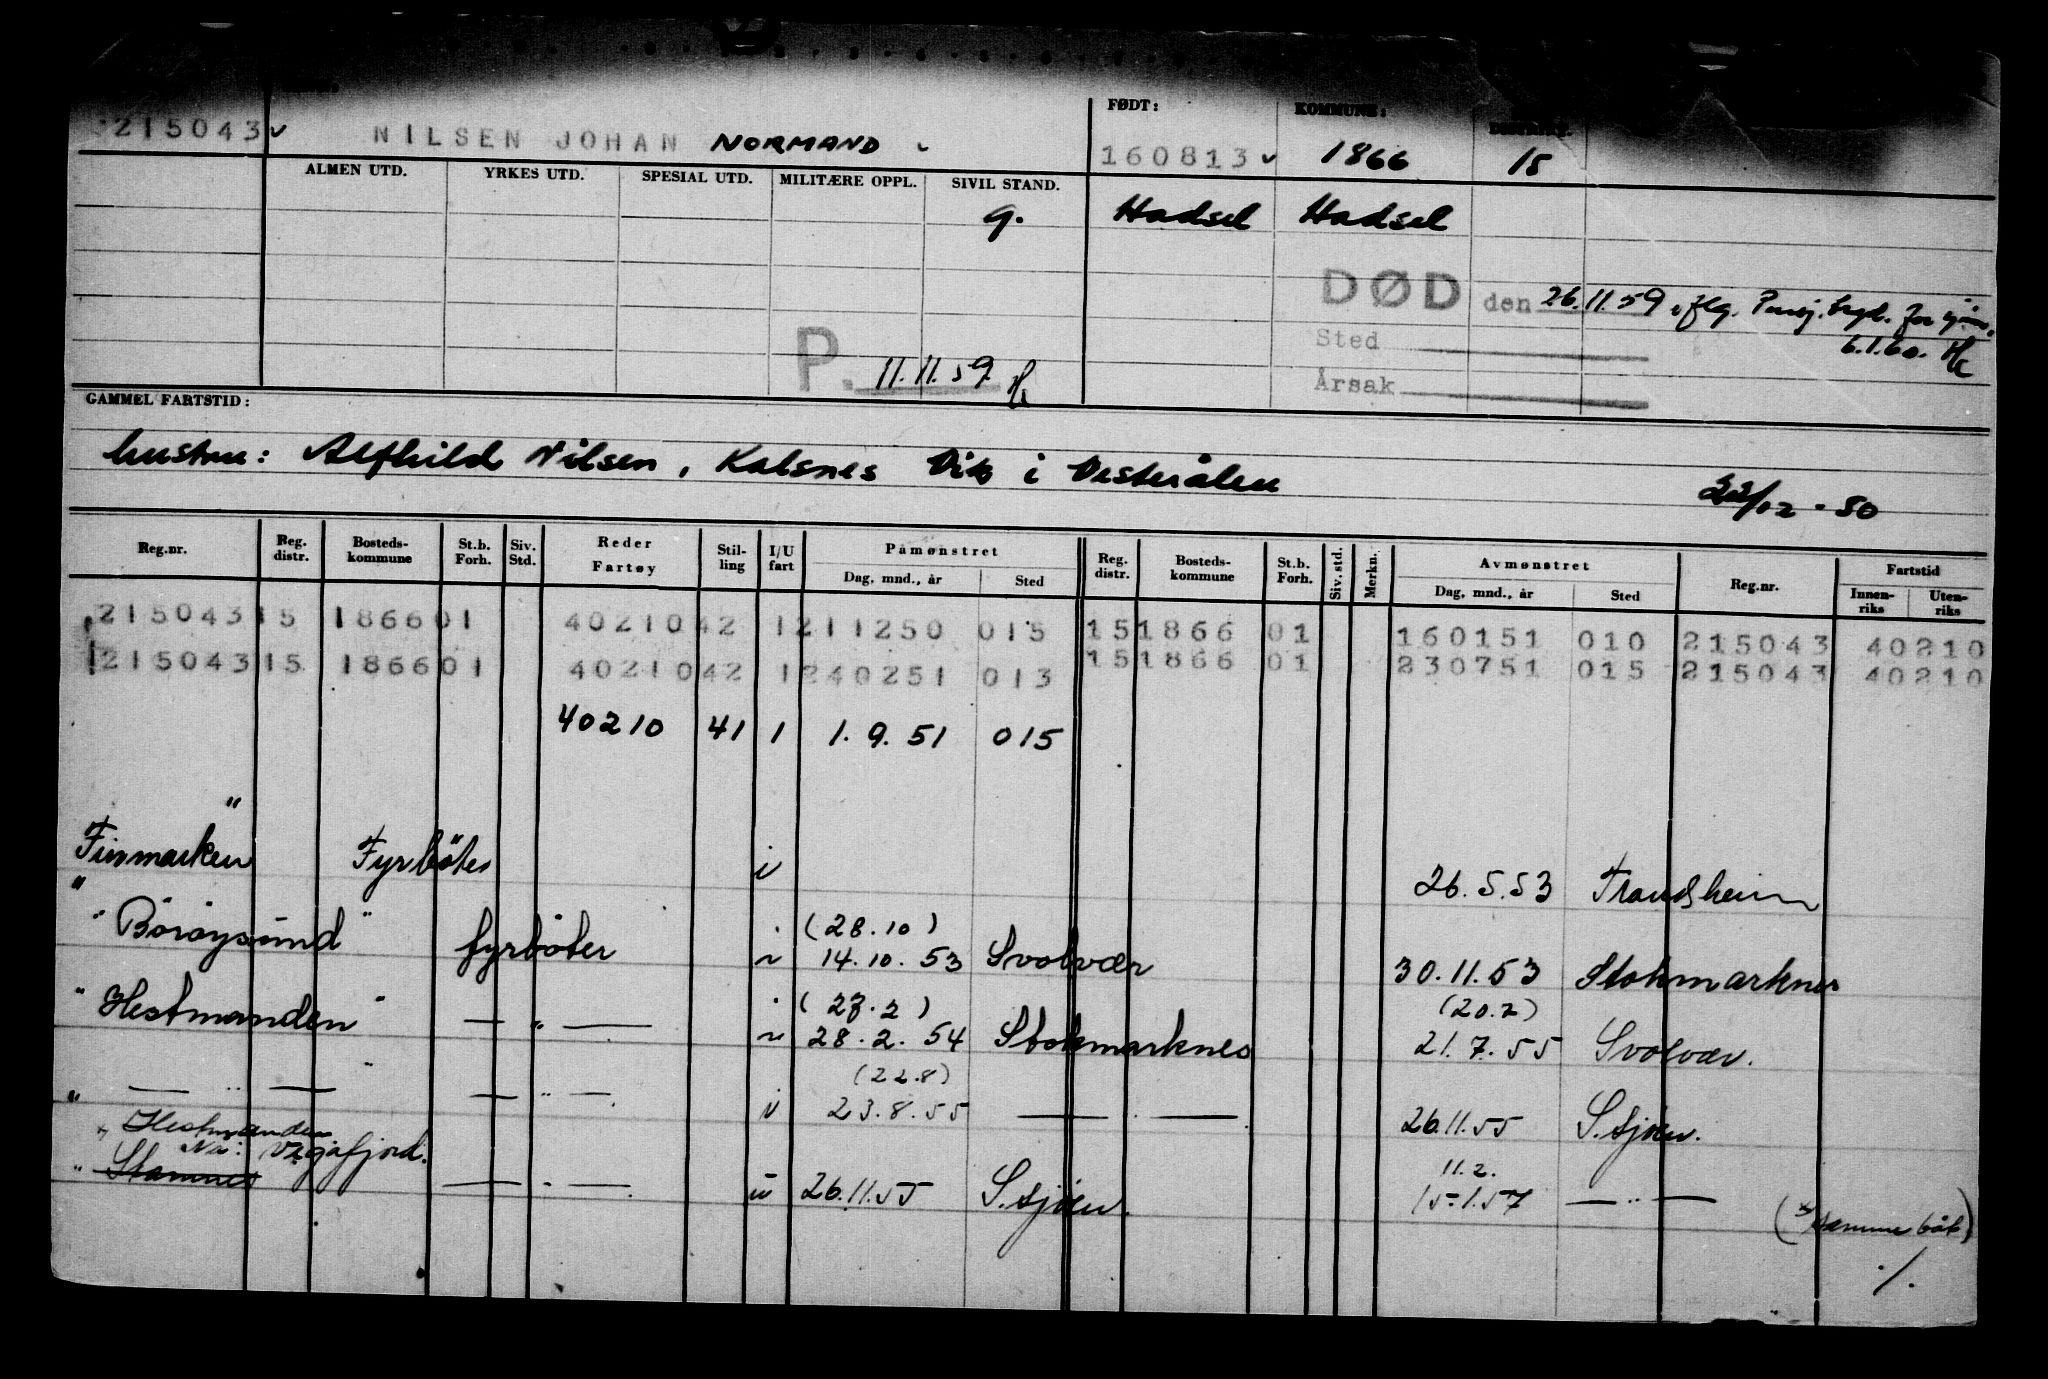 FØDT: KOMMUNE:
215043 NILSEN JOHAN NORMAND 160813 1866 15
ALMEN UTD. YRKES UTD. SPESIAL UTD. MILITÆRE OPPL. SIVIL STAND.
g. Hadsel Hadsel
DØD den 26.11.59, iflg. for sjøm.
Sted 6.1.60.
P. 11.11.59 Årsak
GAMMEL FARTSTID:
hustru: Alfhild Nilsen, Kalsnes Vik i Vesterålen
22/12-50
Reg.nr. Reg. distr. Bosteds-kommune St.b. Forh. Siv. Std. Reder Fartøy Stil-ling I/U fart Påmønstret Reg. distr. Bosteds-kommune St.b. Forh. Siv. std. Merkn. Avmønstret Reg.nr. Fartstid
Dag, mnd., år Sted Dag, mnd., år Sted Innen-riks Uten-riks
215043 15 1866 01 40210 42 1 211250 015 15 1866 01 160151 010 215043 40210
215043 15 1866 01 40210 42 1 240251 013 15 1866 01 230751 015 215043 40210
40210 41 1 1.9.51 015
"Finmarken" Fyrbøter i 26.5.53 Trondheim
(28.10)
"Börøysund" fyrbøter i 14.10.53 Svolvær 30.11.53 Stokmarknes
(27.2) (20.7)
"Hestmanden" — " — 28.2.54 Stokmarknes 21.7.55 Svolvær.
(22.8)
" — " — " — " — i 23.8.55 — " — 26.11.55 S.sjøen.
x Hestmanden
Nu: Vegafjord. 11.2.
" Stamnes — " — 26.11.55 S.sjøen. 15.1.57 — " —
(x samme båt)
./.